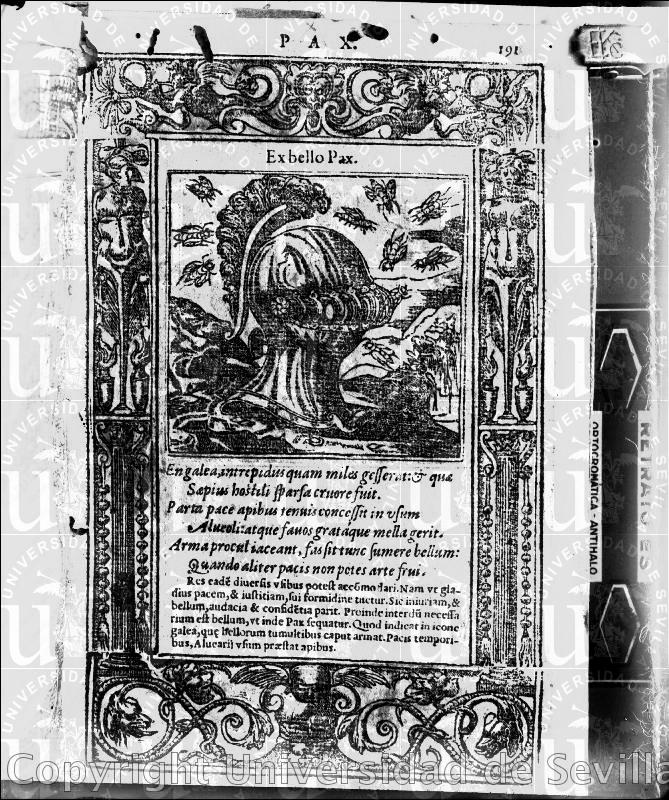 PAX.
191
Ex bello Pax.
En galea, intrepidus quam miles gesserat: & quæ
Sæpius hostili sparsa cruore fuit.
Parta pace apibus tenuis concessit in vsum
Alueoli: atque fauos grataque mella gerit.
Arma procul iaceant, fas sit tunc sumere bellum:
Quando aliter pacis non potes arte frui.
Res eadē diuersis vsibus potest accōmodari. Nam vt gla-
dius pacem, & iustitiam, sui formidine tuetur. Sic iniuriam, &
bellum, audacia & confidētia parit. Proinde interdū necessa
rium est bellum, vt inde Pax sequatur. Quod indicat in icone
galea, quę bellorum tumultibus caput armat. Pacis tempori-
bus, Aluearij vsum præstat apibus.
ORTOCROMATICA - ANTIHALO
Copyright Universidad de Sevilla